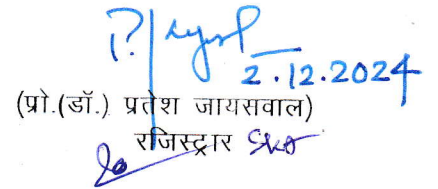 2.12.2024
(प्रो.(डॉ.) प्रतेश जायसवाल)
रजिस्ट्रार